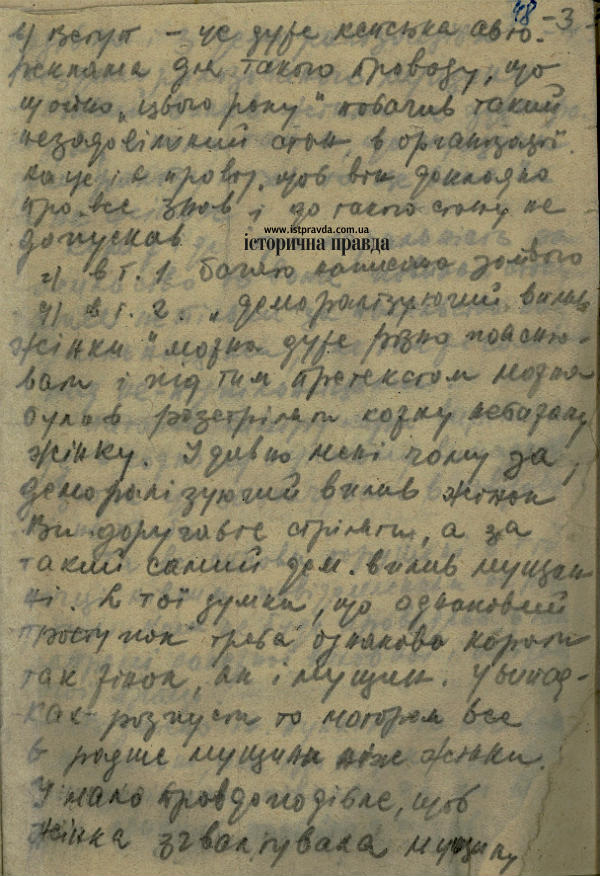 48 -3-
в) Вступ – це дуже кепська авто-
реклама для такого проводу, що
щойно „цього року" побачив такий
незадовільний стан в організації.
на це і є провід, щоб він докладно
про все знав і до такого стану не
допускав
www.istpravda.com.ua
історична правда
г) в т. 1 багато написано зайвого
ч) в т. 2. „деморалізуючий вплив
жінки" можна дуже різно поясню-
вати і під тим претекстом можна
було б розстріляти кожну небажану
жінку. І дивно мені чому за
деморалізуючий вплив жінок
Ви доручаєте стріляти, а за
такий самий дем. вплив мущин
ні. Я тої думки, що однаковий
проступок треба однаково карати
так жінок, як і мущин. У випад-
ках розпусти то мотором все
є радше мущина ніж жінка.
І мало правдоподібне, щоб
жінка згвалтувала мущину